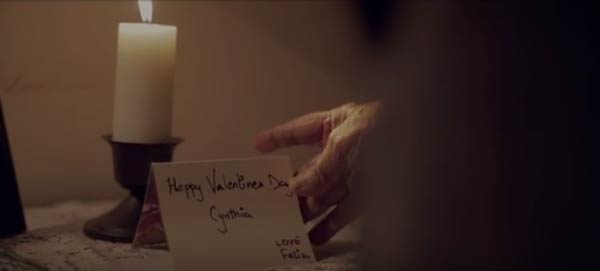 Happy Valentines Day
Cynthia
LOVE
Felix